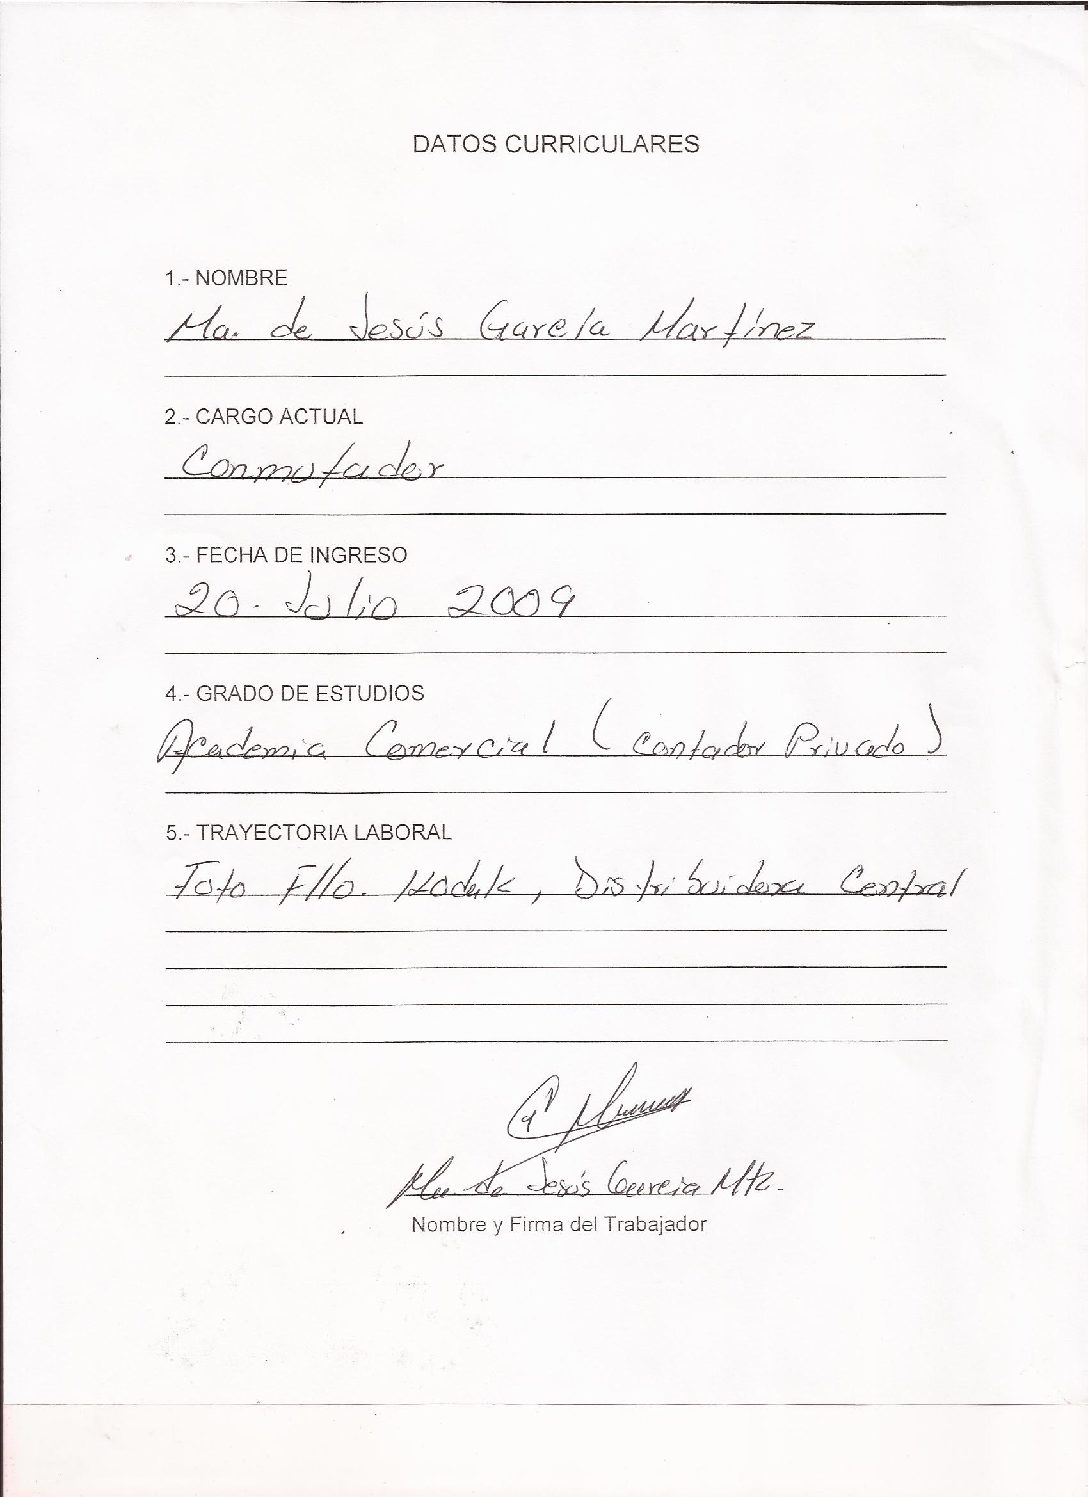 DATOS CURRICULARES
1.- NOMBRE
Ma. de Jesús García Martínez
2.- CARGO ACTUAL
Conmutador
3.- FECHA DE INGRESO
20. Julio 2009
4.- GRADO DE ESTUDIOS
Academia Comercial ( Contador Privado )
5.- TRAYECTORIA LABORAL
Foto Fllo. Kodak, Distribuidora Central
Ma de Jesús García Mtz.
Nombre y Firma del Trabajador